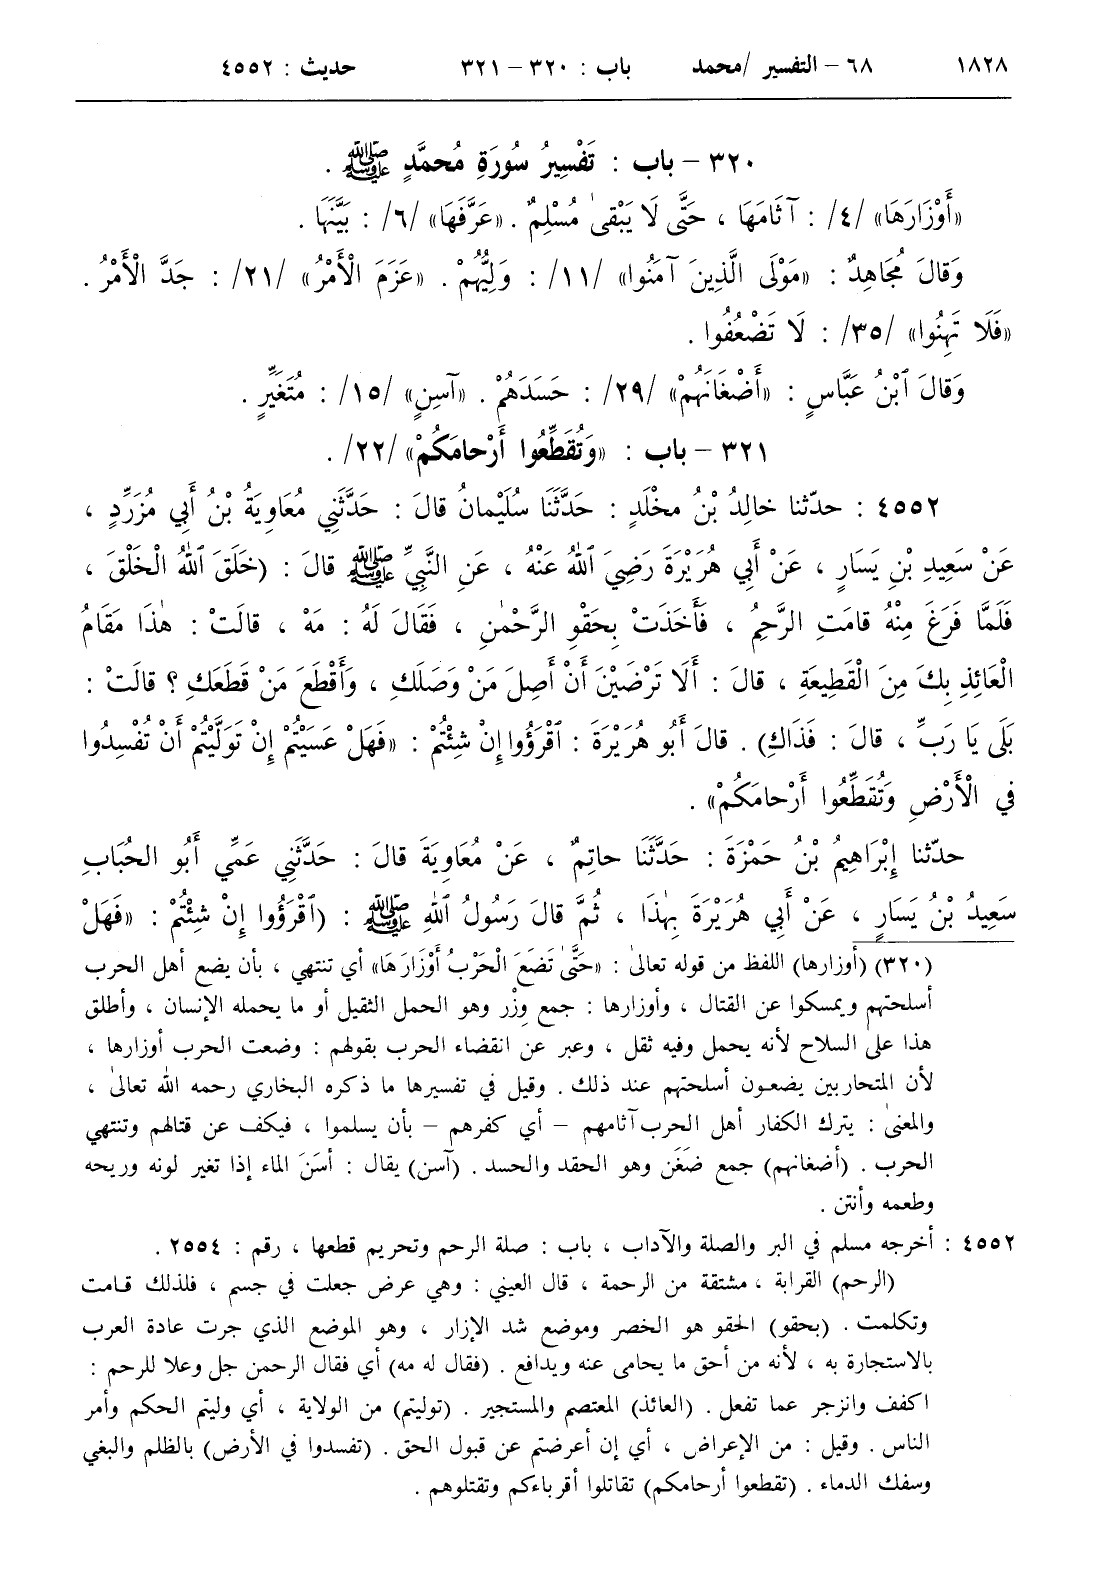 ١٨٢٨ ٦٨ – التفسير /محمد باب : ٣٢٠ – ٣٢١ حديث : ٤٥٥٢
٣٢٠ – باب : تَفْسِيرُ سُورَةِ مُحمَّدٍ ﷺ .
«أَوْزَارَهَا» /٤/ : آثَامَهَا ، حَتَّى لَا يَبْقىٰ مُسْلِمٌ . «عَرَّفَهَا» /٦/ : بَيَّنَهَا .
وَقالَ مُجَاهِدٌ : «مَوْلَى الَّذِينَ آمَنُوا» /١١/ : وَلِيُّهُمْ . «عَزَمَ الْأَمْرُ» /٢١/ : جَدَّ الْأَمْرُ .
«فَلَا تَهِنُوا» /٣٥/ : لَا تَضْعُفُوا .
وَقالَ ٱبْنُ عَبَّاسٍ : «أَضْغَانَهُمْ» /٢٩/ : حَسَدَهُمْ . «آسِنٍ» /١٥/ : مُتَغَيِّرٍ .
٣٢١ – باب : «وَتُقَطِّعُوا أَرْحامَكُمْ» /٢٢/ .
٤٥٥٢ : حدّثنا خالِدُ بْنُ مخْلَدٍ : حَدَّثَنَا سُلَيْمانُ قالَ : حَدَّثَنِي مُعَاوِيَةُ بْنُ أَبِي مُزَرِّدٍ ،
عَنْ سَعِيدِ بْنِ يَسَارٍ ، عَنْ أَبِي هُرَيْرَةَ رَضِيَ ٱللهُ عَنْهُ ، عَنِ النَّبِيِّ ﷺ قالَ : (خَلَقَ ٱللهُ الْخَلْقَ ،
فَلَمَّا فَرَغَ مِنْهُ قامَتِ الرَّحِمُ ، فَأَخَذَتْ بِحَقْوِ الرَّحْمٰنِ ، فَقَالَ لَهُ : مَهْ ، قالَتْ : هٰذَا مَقَامُ
الْعَائِذِ بِكَ مِنَ الْقَطِيعَةِ ، قالَ : أَلَا تَرْضَيْنَ أَنْ أَصِلَ مَنْ وَصَلَكِ ، وَأَقْطَعَ مَنْ قَطَعَكِ ؟ قالَتْ :
بَلَى يَا رَبِّ ، قالَ : فَذَاكِ) . قالَ أَبُو هُرَيْرَةَ : ٱقْرَؤُوا إِنْ شِئْتُمْ : «فَهَلْ عَسَيْتُمْ إِنْ تَوَلَّيْتُمْ أَنْ تُفْسِدُوا
في الْأَرْضِ وَتُقَطِّعُوا أَرْحامَكُمْ» .
حدّثنا إِبْرَاهِيمُ بْنُ حَمْزَةَ : حَدَّثَنَا حاتِمٌ ، عَنْ مُعَاوِيَةَ قالَ : حَدَّثَنِي عَمِّي أَبُو الحُبَابِ
سَعِيدُ بْنُ يَسَارٍ ، عَنْ أَبِي هُرَيْرَةَ بِهٰذَا ، ثُمَّ قالَ رَسُولُ ٱللهِ ﷺ : (ٱقْرَؤُوا إِنْ شِئْتُمْ : «فَهَلْ
(٣٢٠) (أوزارها) اللفظ من قوله تعالىٰ : «حَتَّىٰ تَضَعَ الْحَرْبُ أَوْزَارَهَا» أي تنتهي ، بأن يضع أهل الحرب
أسلحتهم ويمسكوا عن القتال ، وأوزارها : جمع وِزْر وهو الحمل الثقيل أو ما يحمله الإنسان ، وأطلق
هذا على السلاح لأنه يحمل وفيه ثقل ، وعبر عن انقضاء الحرب بقولهم : وضعت الحرب أوزارها ،
لأن المتحاربين يضعون أسلحتهم عند ذلك . وقيل في تفسيرها ما ذكره البخاري رحمه الله تعالىٰ ،
والمعنىٰ : يترك الكفار أهل الحرب آثامهم – أي كفرهم – بأن يسلموا ، فيكف عن قتالهم وتنتهي
الحرب . (أضغانهم) جمع ضَغَن وهو الحقد والحسد . (آسن) يقال : أسَنَ الماء إذا تغير لونه وريحه
وطعمه وأنتن .
٤٥٥٢ : أخرجه مسلم في البر والصلة والآداب ، باب : صلة الرحم وتحريم قطعها ، رقم : ٢٥٥٤ .
(الرحم) القرابة ، مشتقة من الرحمة ، قال العيني : وهي عرض جعلت في جسم ، فلذلك قامت
وتكلمت . (بحقو) الحقو هو الخصر وموضع شد الإزار ، وهو الموضع الذي جرت عادة العرب
بالاستجارة به ، لأنه من أحق ما يحامى عنه ويدافع . (فقال له مه) أي فقال الرحمن جل وعلا للرحم :
اكفف وانزجر عما تفعل . (العائذ) المعتصم والمستجير . (توليتم) من الولاية ، أي وليتم الحكم وأمر
الناس . وقيل : من الإعراض ، أي إن أعرضتم عن قبول الحق . (تفسدوا في الأرض) بالظلم والبغي
وسفك الدماء . (تقطعوا أرحامكم) تقاتلوا أقرباءكم وتقتلوهم .